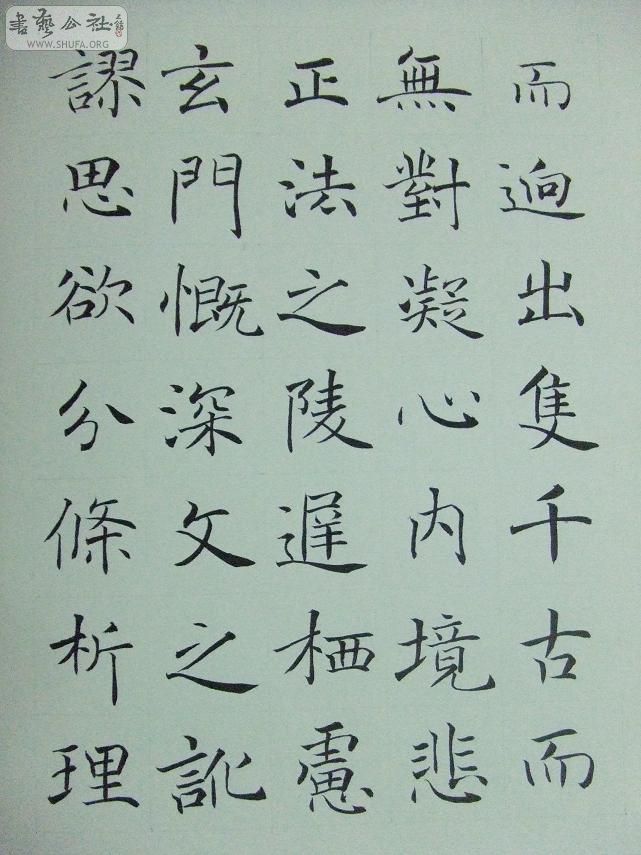 書藝公社
WWW.SHUFA.ORG
而逈出隻千古而
無對凝心内境悲
正法之陵遅栖慮
玄門慨深文之訛
謬思欲分條析理